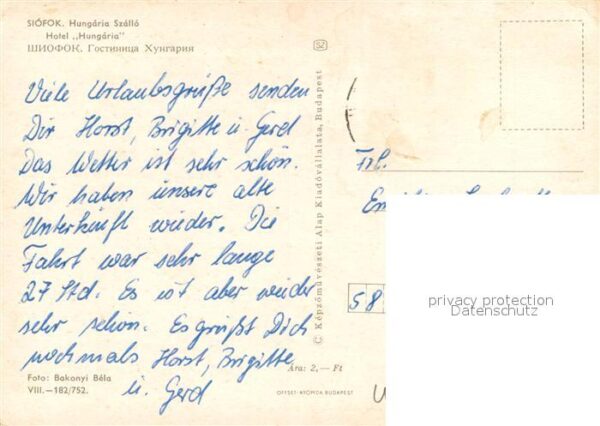 SIÓFOK. Hungária Szálló
Hotel „Hungária"
ШИОФОК. Гостиница Хунгария
Viele Urlaubsgrüße senden
Dir Horst, Brigitte u. Gerd
Das Wetter ist sehr schön.
Wir haben unsere alte
Unterkunft wieder. Die
Fahrt war sehr lange
27 Std. Es ist aber wieder
sehr schön. Es grüßt Dich
nochmals Horst, Brigitte
u. Gerd
Foto: Bakonyi Béla
VIII.—182/752.
SZ
© Képzőművészeti Alap Kiadóvállalata, Budapest
Ára: 2,— Ft
OFFSET-NYOMDA BUDAPEST
Frl.
58
privacy protection
Datenschutz